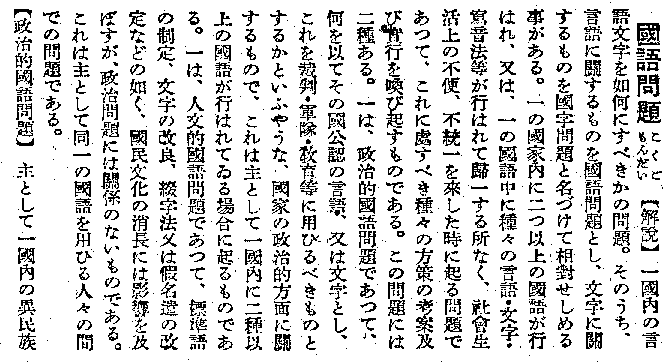 國語問題 こくごもんだい 【解說】 一國內の言
語文字を如何にすべきかの問題。そのうち、
言語に關するものを國語問題とし、文字に關
するものを國字問題と名づけて相對せしめる
事がある。一の國家內に二つ以上の國語が行
はれ、又は、一の國語中に種々の言語・文字・
寫音法等が行はれて歸一する所なく、社會生
活上の不便、不統一を來した時に起る問題で
あつて、これに處すべき種々の方策の考案及
び實行を喚び起すものである。この問題には
二種ある。一は、政治的國語問題であつて、
何を以てその國公認の言語、又は文字とし、
これを裁判・軍隊・敎育等に用ひるべきものと
するかといふやうな、國家の政治的方面に關
するもので、これは主として一國內に二種以
上の國語が行はれてゐる場合に起るものであ
る。一は、人文的國語問題であつて、標準語
の制定、文字の改良、綴字法又は假名遣の改
定などの如く、國民文化の消長には影響を及
ぼすが、政治問題には關係のないものである。
これは主として同一の國語を用ひる人々の間
での問題である。
【政治的國語問題】 主として一國內の異民族